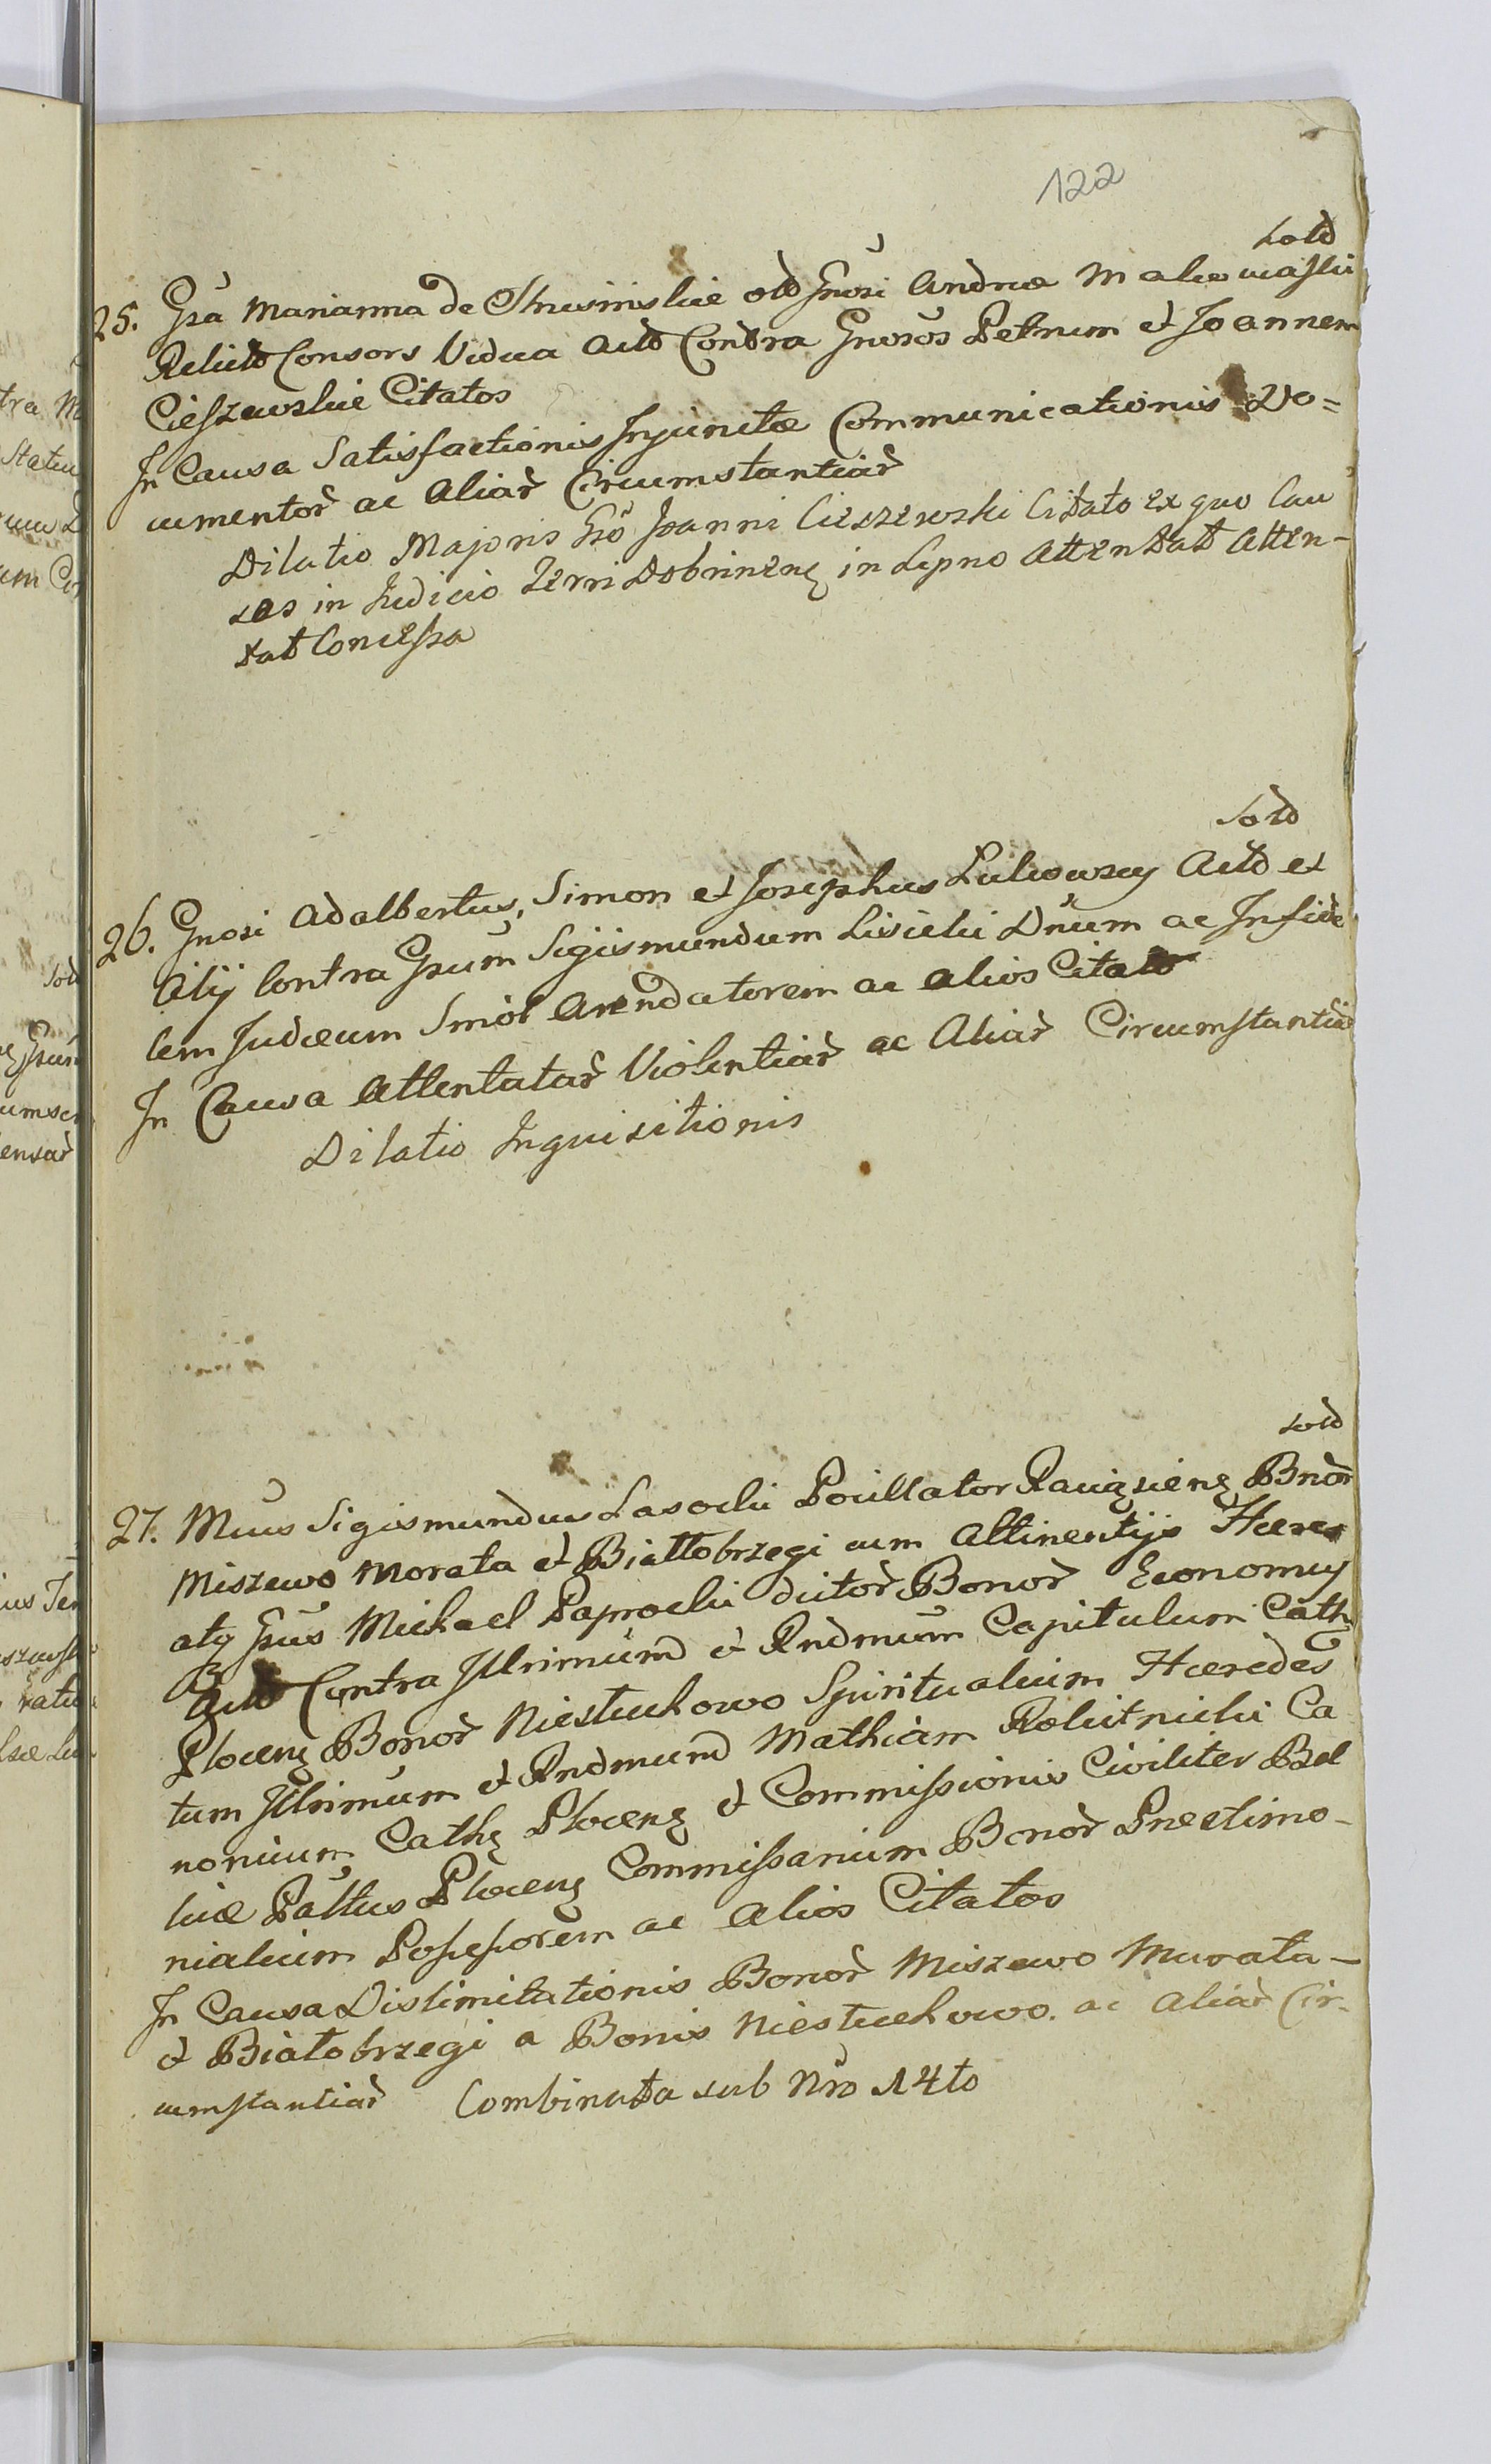 122
Sold
25. Gsa Marianna de Strusinskie old Gnosi Andreæ Malewaski
Relict Consors Vidua Actd Contra Gnosos Petrum et Joannem
Cieszewskie Citatos
In Causa Satisfactionis Injunctæ Communicationis Do=
cumentor ac Aliar Circumstantiar
Dilatio Majoris Gso Joanni Cieszewski Citato ex quo Cau
sas in Judicio Terri Dobrinen in Lipno Attentat Atten-
tat Concessa
Sold
26. Gnosi Adalbertus, Simon et Josephus Lukowscy Actd et
Alij Contra Gsum Sigismundum Lisicki Dnum ac Infide
lem Judæum Smol Arendatorem ac alios Citat
In Causa Attentatar Violentiar ac Aliar Circumstantiar
Dilatio Inquisitionis
Sold
27. Mcus Sigismundus Lasocki Pocillator Bnor
Miszewo Morata et Białłobrzegi cum Attinentijs Hæres
atq Gsus Michael Paprocki dictor Bonor Economus
Actd Contra Illrimum et Rndmum Capitulum Cath
Plocen Bonor Niestuchowo Spiritualium Hæredes
tum Illrimum et Rndmum Mathiam Rokitnicki Ca
nonicum Cath Plocen et Commissionis Civiliter Bel
licæ Pallus Plocen Commissarium Bonor Prestimo-
nialium Possessorem ac Alios Citatos
In Causa Dislimitationis Bonor Miszewo Murata-
et Białobrzegi a Bonis Niestuchowo. ac Aliar Cir-
cumstantiar Combinata sub Nro 14to